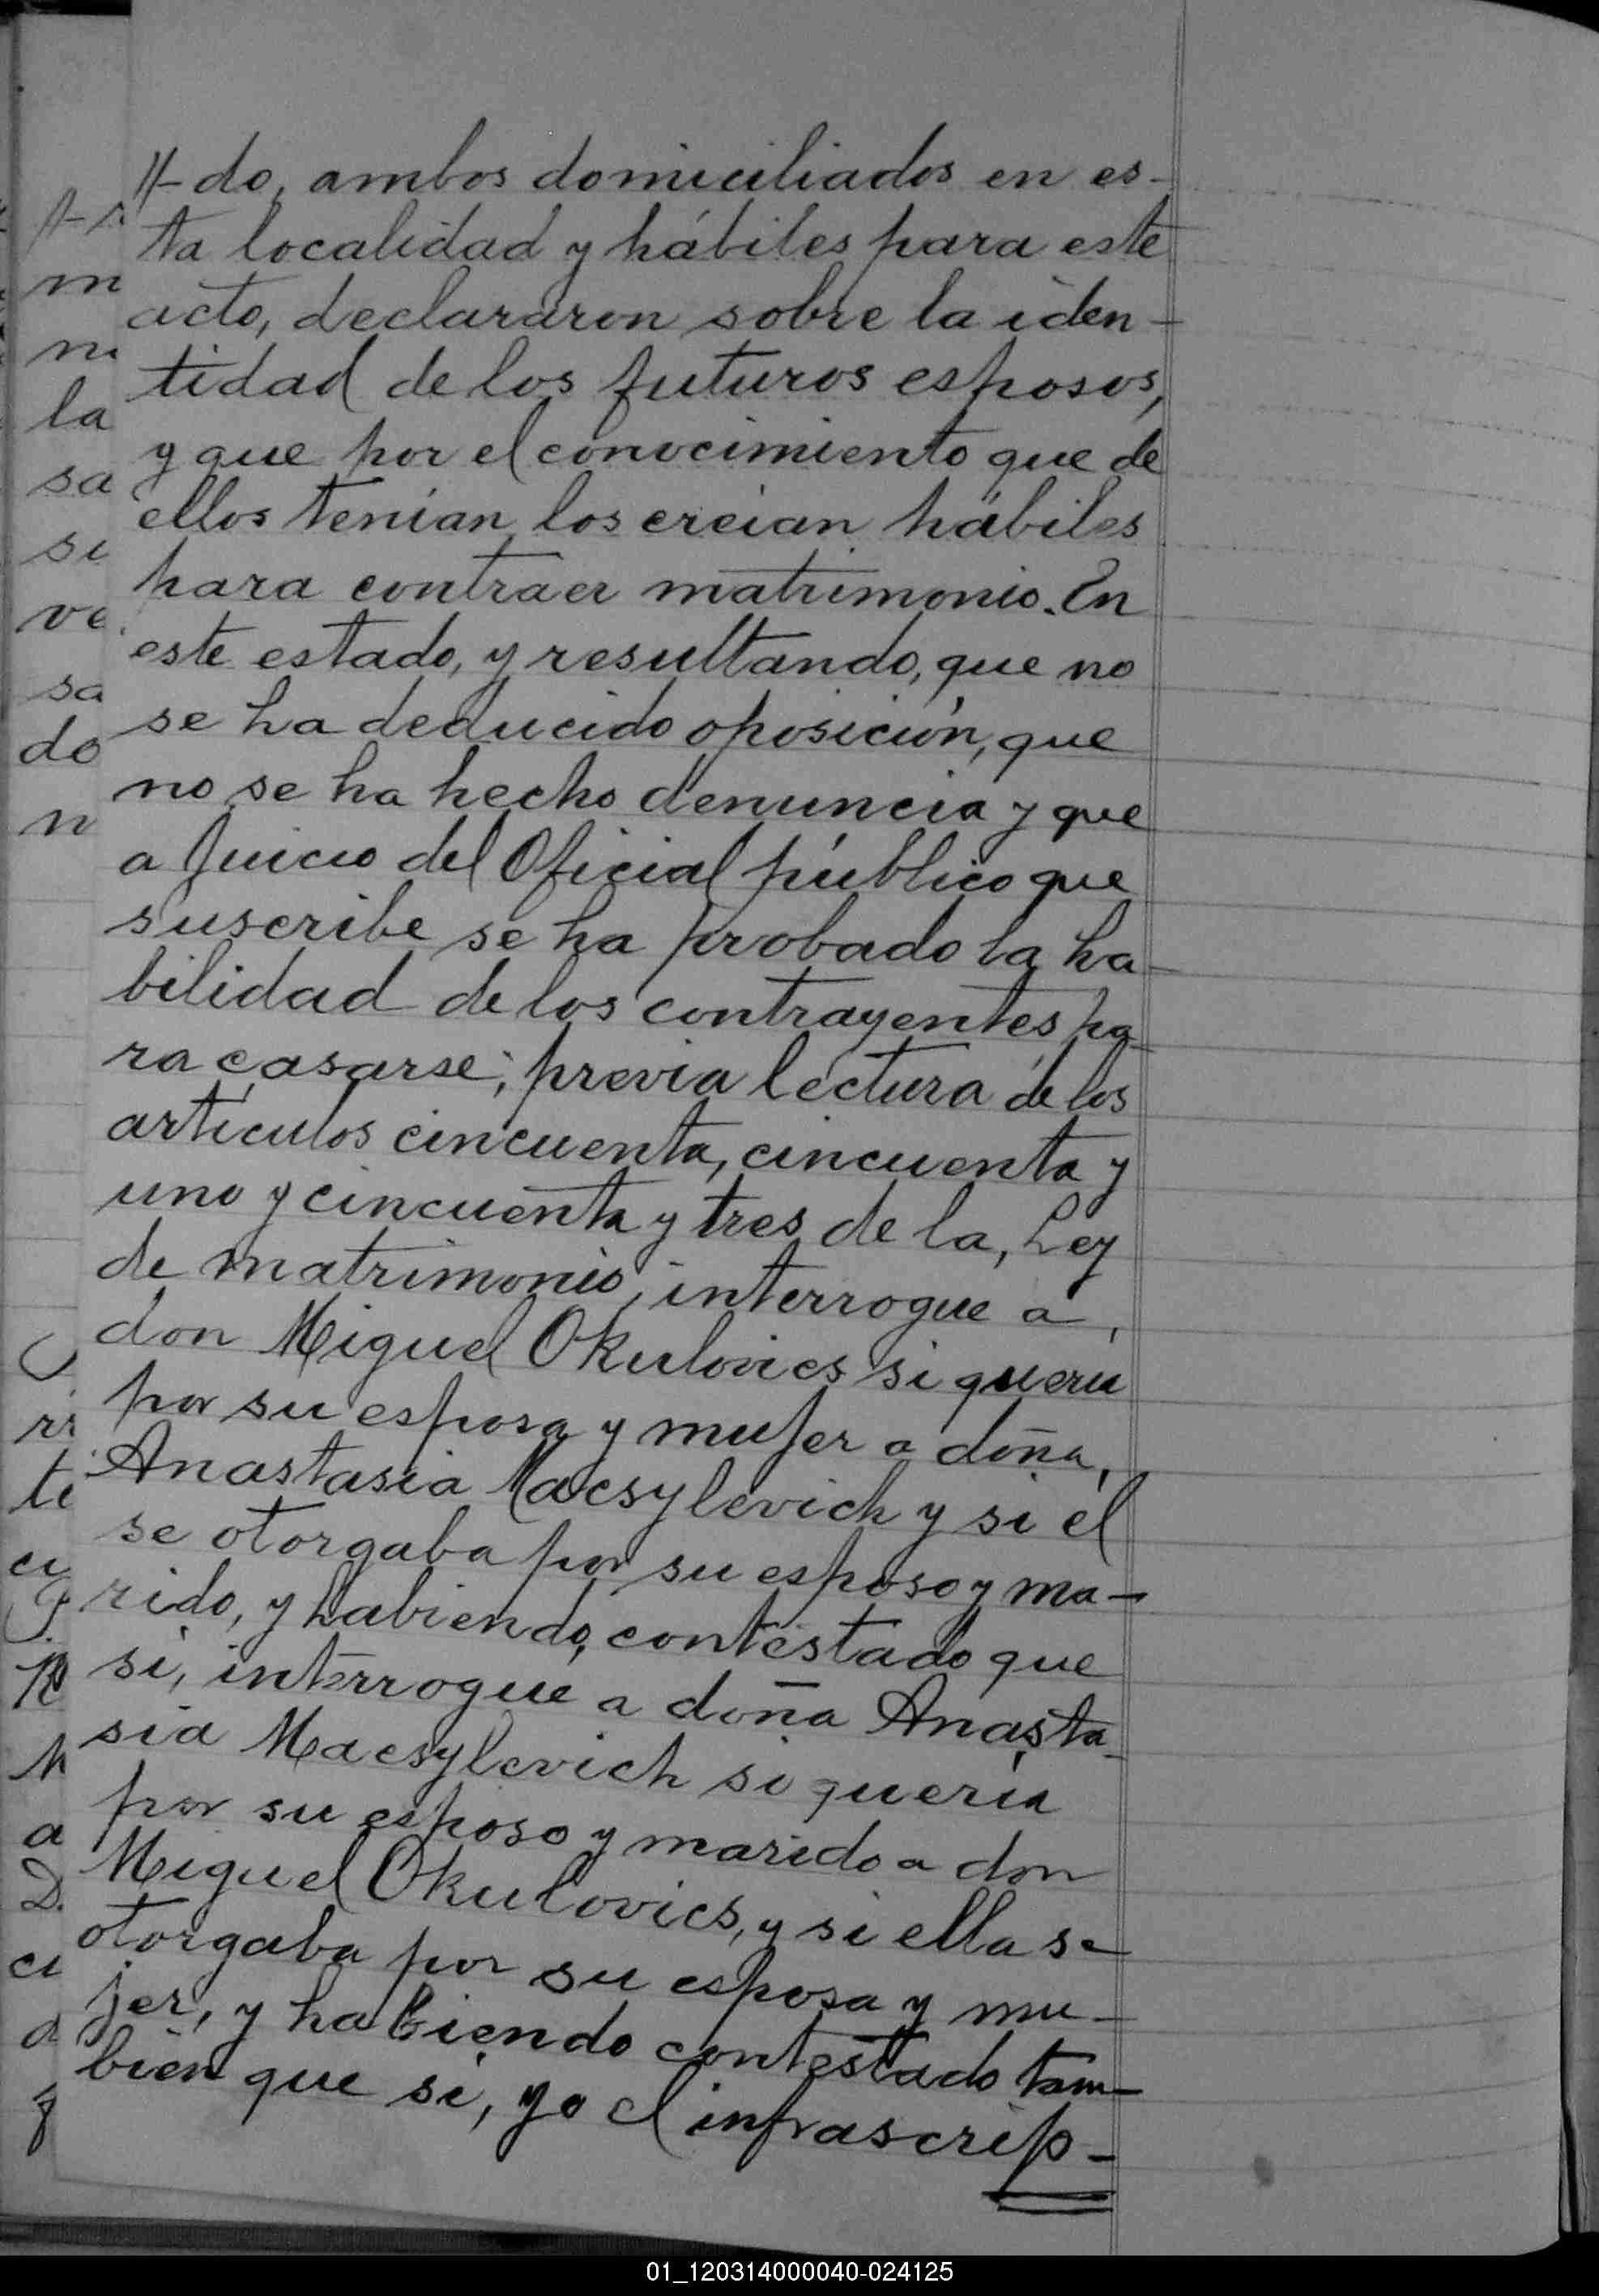 //-do, ambos domiciliados en es-
ta localidad y hábiles para este
acto, declararon sobre la iden-
tidad de los futuros esposos,
y que por el conocimiento que de
ellos tenían los creian hábiles
para contraer matrimonio. En
este estado, y resultando, que no
se ha deducido oposición, que
no se ha hecho denuncia y que
a juicio del Oficial público que
suscribe se ha probado la ha-
bilidad de los contrayentes pa-
ra casarse; previa lectura de los
artículos cincuenta, cincuenta y
uno y cincuenta y tres de la, Ley
de matrimonio, interrogue a,
don Miguel Okulovics si queria
por su esposa y mujer a doña,
Anastasia Macsylevich y si él
se otorgaba por su esposo y ma-
rido, y habiendo, contestado que
si, interrogué a doña Anasta-
sia Macsylevich si quería
por su esposo y marido a don
Miguel Okulovics, y si ella se
otorgaba por su esposa y mu-
jer, y habiendo contestado tam-
bien que si, yo el infrascrip-
m
la
sa
si
ve
sa
do
n
te
a
D.
01_120314000040-024125